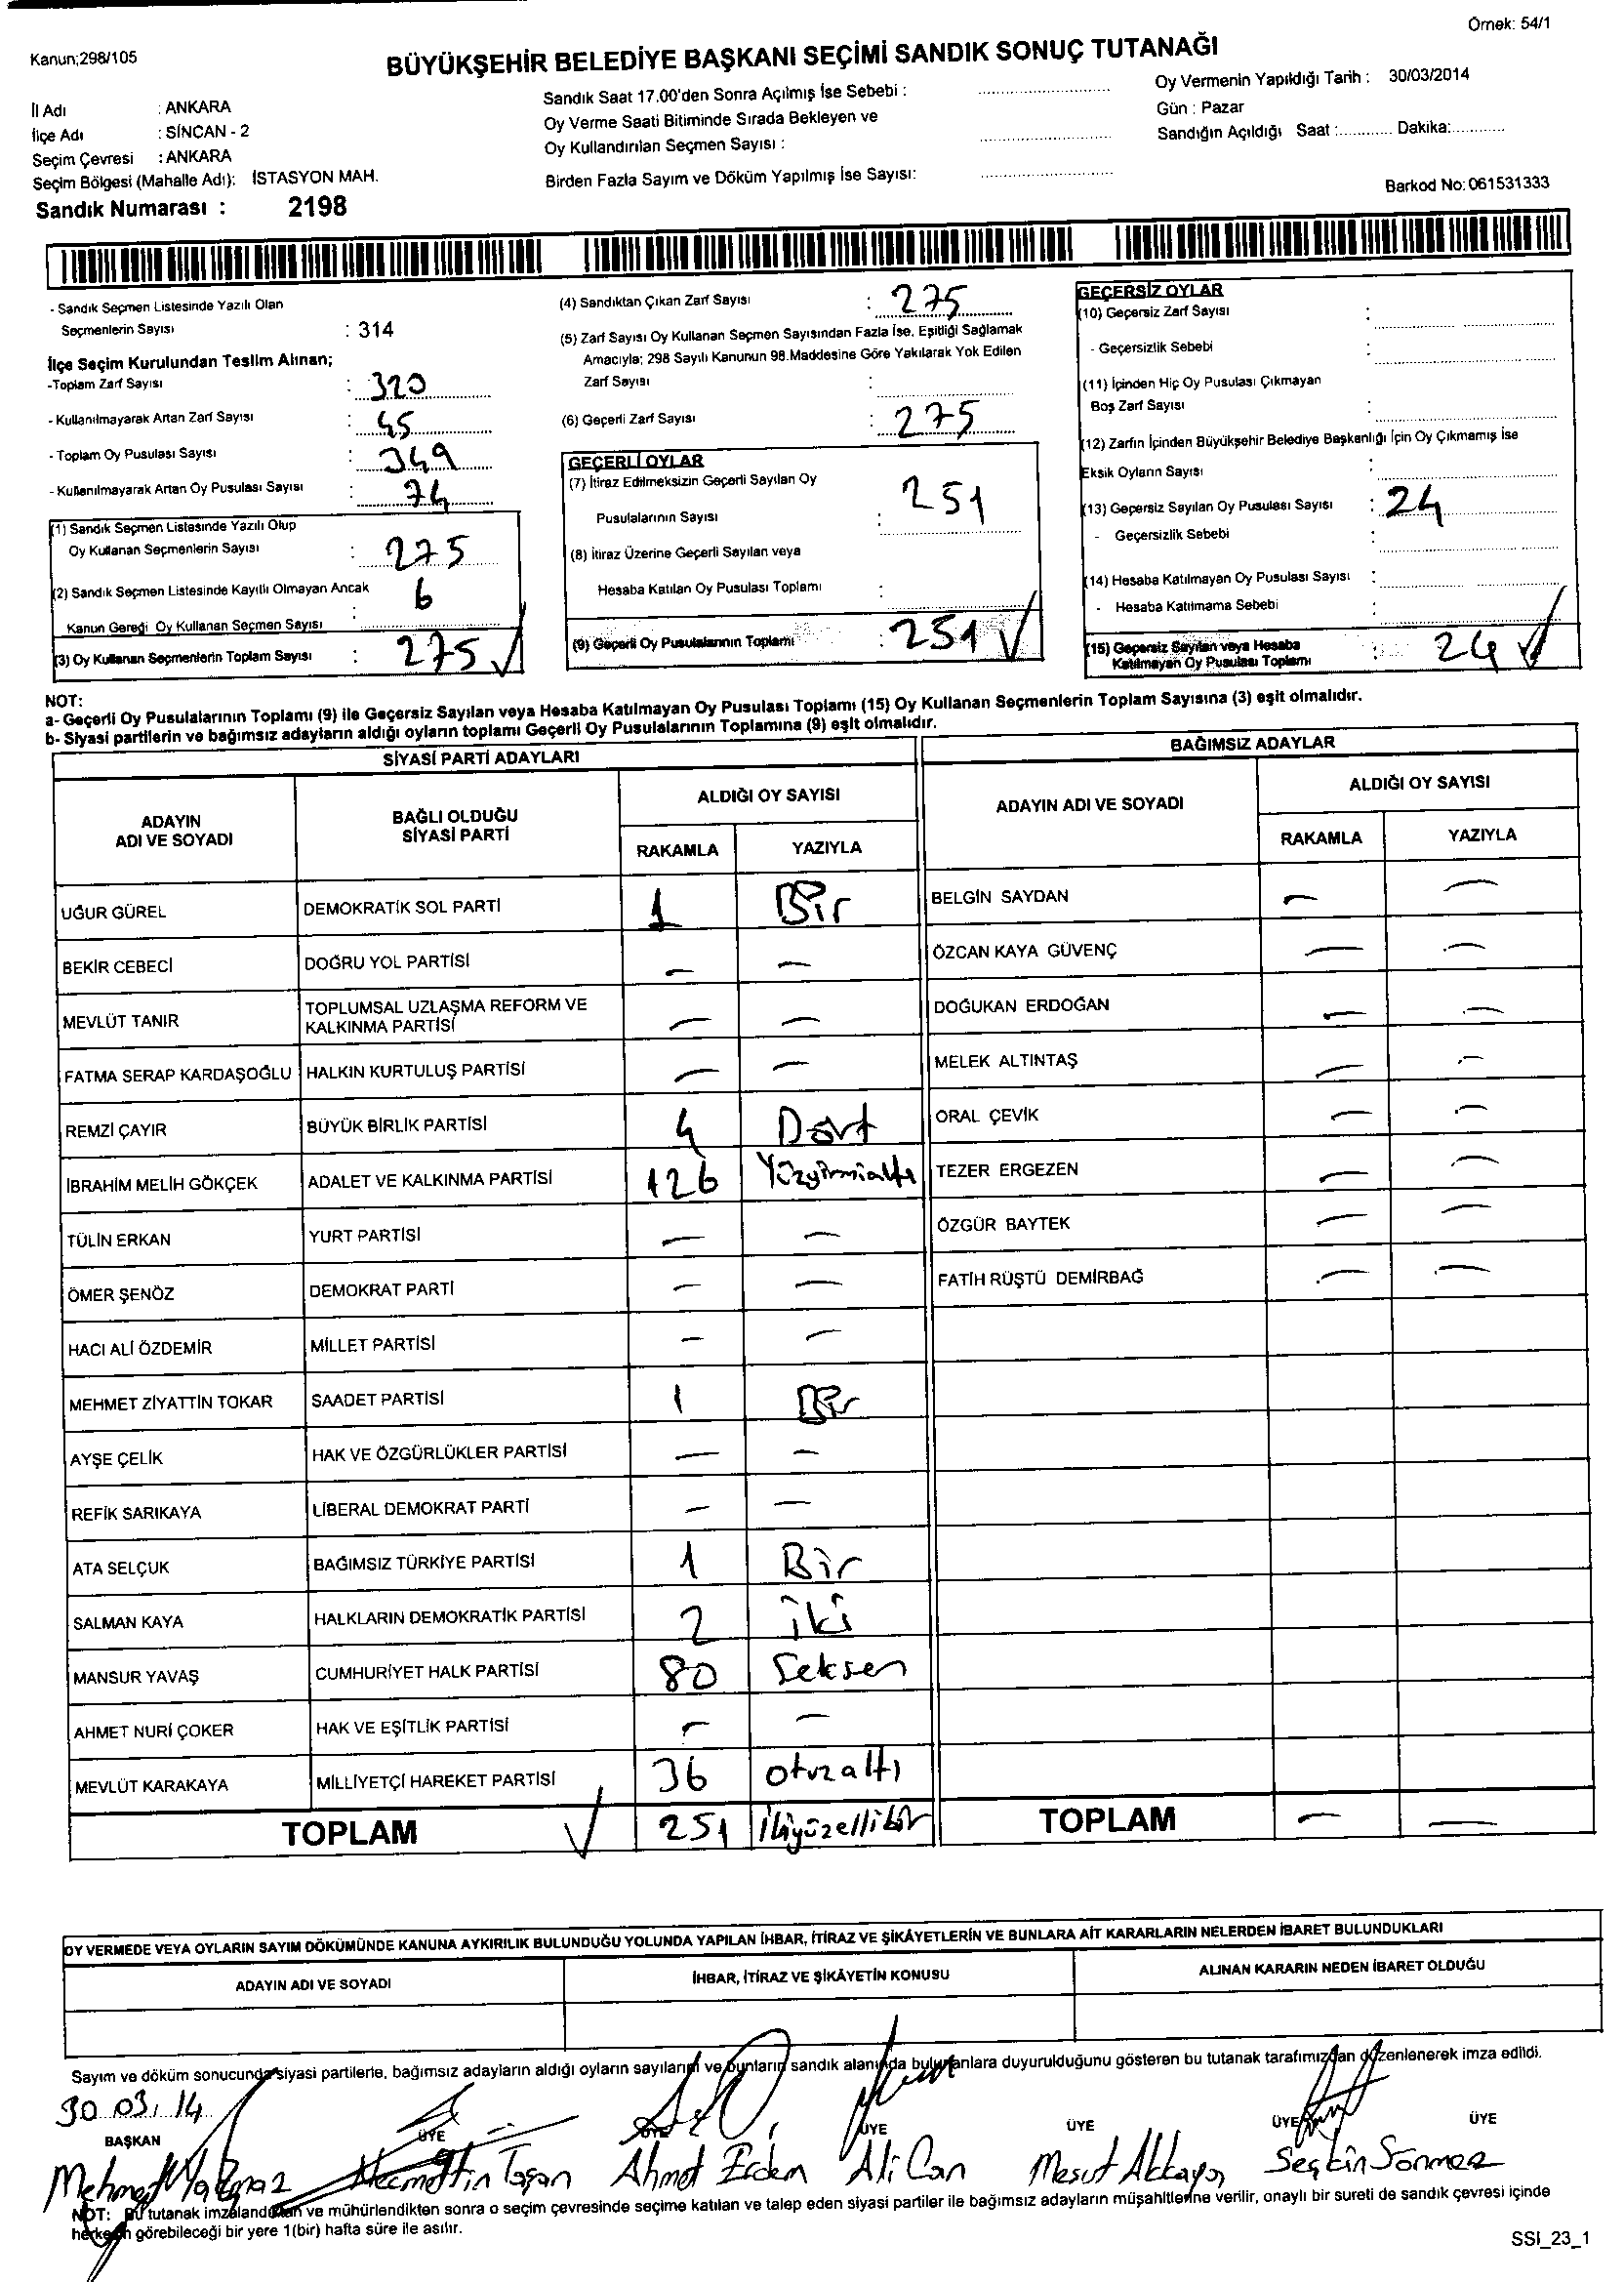 Örnek: 54/1
Kanun;298/105
BÜYÜKŞEHİR BELEDİYE BAŞKANI SEÇİMİ SANDIK SONUÇ TUTANAĞI
İl Adı : ANKARA
İlçe Adı : SİNCAN - 2
Seçim Çevresi : ANKARA
Seçim Bölgesi (Mahalle Adı): İSTASYON MAH.
Sandık Numarası : 2198
Sandık Saat 17.00'den Sonra Açılmış İse Sebebi :
Oy Verme Saati Bitiminde Sırada Bekleyen ve
Oy Kullandırılan Seçmen Sayısı :
Birden Fazla Sayım ve Döküm Yapılmış İse Sayısı:
Oy Vermenin Yapıldığı Tarih : 30/03/2014
Gün : Pazar
Sandığın Açıldığı Saat :............ Dakika:............
Barkod No: 061531333
- Sandık Seçmen Listesinde Yazılı Olan
Seçmenlerin Sayısı : 314
İlçe Seçim Kurulundan Teslim Alınan;
-Toplam Zarf Sayısı : 320
- Kullanılmayarak Artan Zarf Sayısı : 45
- Toplam Oy Pusulası Sayısı : 349
- Kullanılmayarak Artan Oy Pusulası Sayısı : 74
(1) Sandık Seçmen Listesinde Yazılı Olup
Oy Kullanan Seçmenlerin Sayısı : 275
(2) Sandık Seçmen Listesinde Kayıtlı Olmayan Ancak
Kanun Gereği Oy Kullanan Seçmen Sayısı : 6
(3) Oy Kullanan Seçmenlerin Toplam Sayısı : 275 ✓
(4) Sandıktan Çıkan Zarf Sayısı : 275
(5) Zarf Sayısı Oy Kullanan Seçmen Sayısından Fazla İse, Eşitliği Sağlamak
Amacıyla; 298 Sayılı Kanunun 98.Maddesine Göre Yakılarak Yok Edilen
Zarf Sayısı :
(6) Geçerli Zarf Sayısı : 275
GEÇERLİ OYLAR
(7) İtiraz Edilmeksizin Geçerli Sayılan Oy
Pusulalarının Sayısı : 251
(8) İtiraz Üzerine Geçerli Sayılan veya
Hesaba Katılan Oy Pusulası Toplamı :
(9) Geçerli Oy Pusulalarının Toplamı : 251 ✓
GEÇERSİZ OYLAR
(10) Geçersiz Zarf Sayısı :
- Geçersizlik Sebebi :
(11) İçinden Hiç Oy Pusulası Çıkmayan
Boş Zarf Sayısı :
(12) Zarfın İçinden Büyükşehir Belediye Başkanlığı İçin Oy Çıkmamış İse
Eksik Oyların Sayısı :
(13) Geçersiz Sayılan Oy Pusulası Sayısı : 24
- Geçersizlik Sebebi :
(14) Hesaba Katılmayan Oy Pusulası Sayısı :
- Hesaba Katılmama Sebebi :
(15) Geçersiz Sayılan veya Hesaba
Katılmayan Oy Pusulası Toplamı : 24 ✓
NOT:
a- Geçerli Oy Pusulalarının Toplamı (9) ile Geçersiz Sayılan veya Hesaba Katılmayan Oy Pusulası Toplamı (15) Oy Kullanan Seçmenlerin Toplam Sayısına (3) eşit olmalıdır.
b- Siyasi partilerin ve bağımsız adayların aldığı oyların toplamı Geçerli Oy Pusulalarının Toplamına (9) eşit olmalıdır.
SİYASİ PARTİ ADAYLARI
ADAYIN ADI VE SOYADI
BAĞLI OLDUĞU SİYASİ PARTİ
ALDIĞI OY SAYISI
RAKAMLA YAZIYLA
UĞUR GÜREL DEMOKRATİK SOL PARTİ 1 Bir
BEKİR CEBECİ DOĞRU YOL PARTİSİ — —
MEVLÜT TANIR TOPLUMSAL UZLAŞMA REFORM VE KALKINMA PARTİSİ — —
FATMA SERAP KARDAŞOĞLU HALKIN KURTULUŞ PARTİSİ — —
REMZİ ÇAYIR BÜYÜK BİRLİK PARTİSİ 4 Dört
İBRAHİM MELİH GÖKÇEK ADALET VE KALKINMA PARTİSİ 126 Yüzyirmialtı
TÜLİN ERKAN YURT PARTİSİ — —
ÖMER ŞENÖZ DEMOKRAT PARTİ — —
HACI ALİ ÖZDEMİR MİLLET PARTİSİ — —
MEHMET ZİYATTİN TOKAR SAADET PARTİSİ 1 Bir
AYŞE ÇELİK HAK VE ÖZGÜRLÜKLER PARTİSİ — —
REFİK SARIKAYA LİBERAL DEMOKRAT PARTİ — —
ATA SELÇUK BAĞIMSIZ TÜRKİYE PARTİSİ 1 Bir
SALMAN KAYA HALKLARIN DEMOKRATİK PARTİSİ 2 iki
MANSUR YAVAŞ CUMHURİYET HALK PARTİSİ 80 Seksen
AHMET NURİ ÇOKER HAK VE EŞİTLİK PARTİSİ — —
MEVLÜT KARAKAYA MİLLİYETÇİ HAREKET PARTİSİ 36 otuzaltı
TOPLAM ✓ 251 ikiyüzellibir
BAĞIMSIZ ADAYLAR
ADAYIN ADI VE SOYADI
ALDIĞI OY SAYISI
RAKAMLA YAZIYLA
BELGİN SAYDAN — —
ÖZCAN KAYA GÜVENÇ — —
DOĞUKAN ERDOĞAN — —
MELEK ALTINTAŞ — —
ORAL ÇEVİK — —
TEZER ERGEZEN — —
ÖZGÜR BAYTEK — —
FATİH RÜŞTÜ DEMİRBAĞ — —
TOPLAM — —
OY VERMEDE VEYA OYLARIN SAYIM DÖKÜMÜNDE KANUNA AYKIRILIK BULUNDUĞU YOLUNDA YAPILAN İHBAR, İTİRAZ VE ŞİKÂYETLERİN VE BUNLARA AİT KARARLARIN NELERDEN İBARET BULUNDUKLARI
ADAYIN ADI VE SOYADI İHBAR, İTİRAZ VE ŞİKÂYETİN KONUSU ALINAN KARARIN NEDEN İBARET OLDUĞU
Sayım ve döküm sonucunda siyasi partilerle, bağımsız adayların aldığı oyların sayılarını ve bunların sandık alanında bulunanlara duyurulduğunu gösteren bu tutanak tarafımızdan düzenlenerek imza edildi.
30 03. 14
BAŞKAN ÜYE ÜYE ÜYE ÜYE ÜYE ÜYE
Mehmet Necmettin Ahmet Erdem Ali Can Mesut Akkaya Seçkin Sönmez
NOT: Bu tutanak imzalandıktan ve mühürlendikten sonra o seçim çevresinde seçime katılan ve talep eden siyasi partiler ile bağımsız adayların müşahitlerine verilir, onaylı bir sureti de sandık çevresi içinde
herkesin görebileceği bir yere 1(bir) hafta süre ile asılır.
SSI_23_1